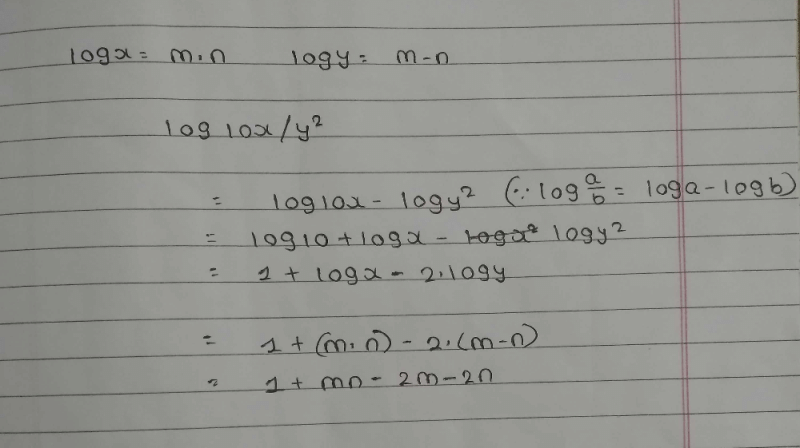 logx = m.n    logy = m-n
log 10x/y²
= log10x - logy² (∵ log a/b = loga - logb)
= log10 + logx - logx² logy²
= 1 + logx - 2.logy
= 1 + (m.n) - 2.(m-n)
= 1 + mn - 2m - 2n